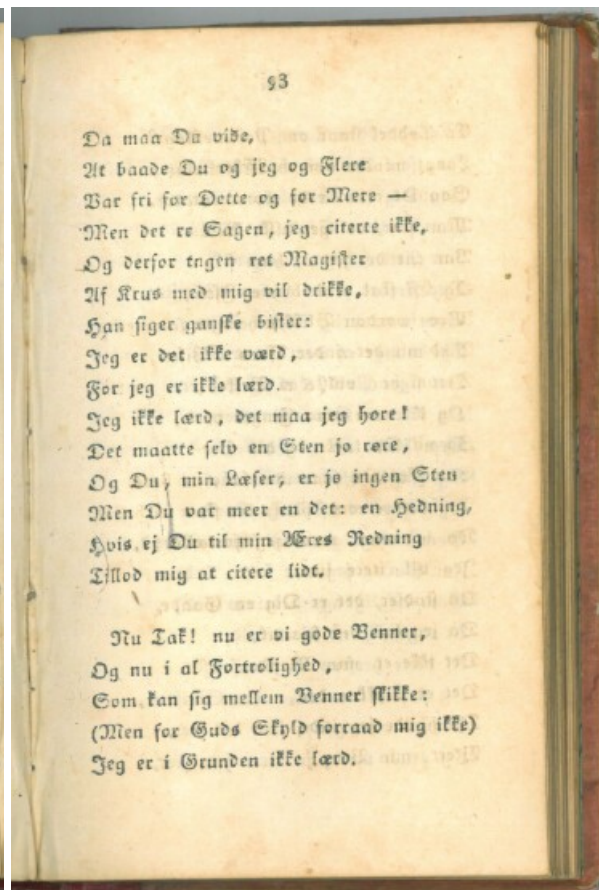 93
Da maa Du vide,
At baade Du og jeg og Flere
Var fri for Dette og for Mere —
Men det er Sagen, jeg citerte ikke,
Og derfor ingen ret Magister
Af Krus med mig vil drikke,
Han siger ganske bister:
Jeg er det ikke værd,
For jeg er ikke lærd.
Jeg ikke lærd, det maa jeg høre!
Det maatte selv en Sten jo røre,
Og Du, min Læser, er jo ingen Sten
Men Du var meer en det: en Hedning,
Hvis ej Du til min Æres Redning
Tillod mig at citere lidt.
Nu Tak! nu er vi gode Venner,
Og nu i al Fortrolighed,
Som kan sig mellem Venner skikke:
(Men for Guds Skyld forraad mig ikke)
Jeg er i Grunden ikke lærd.